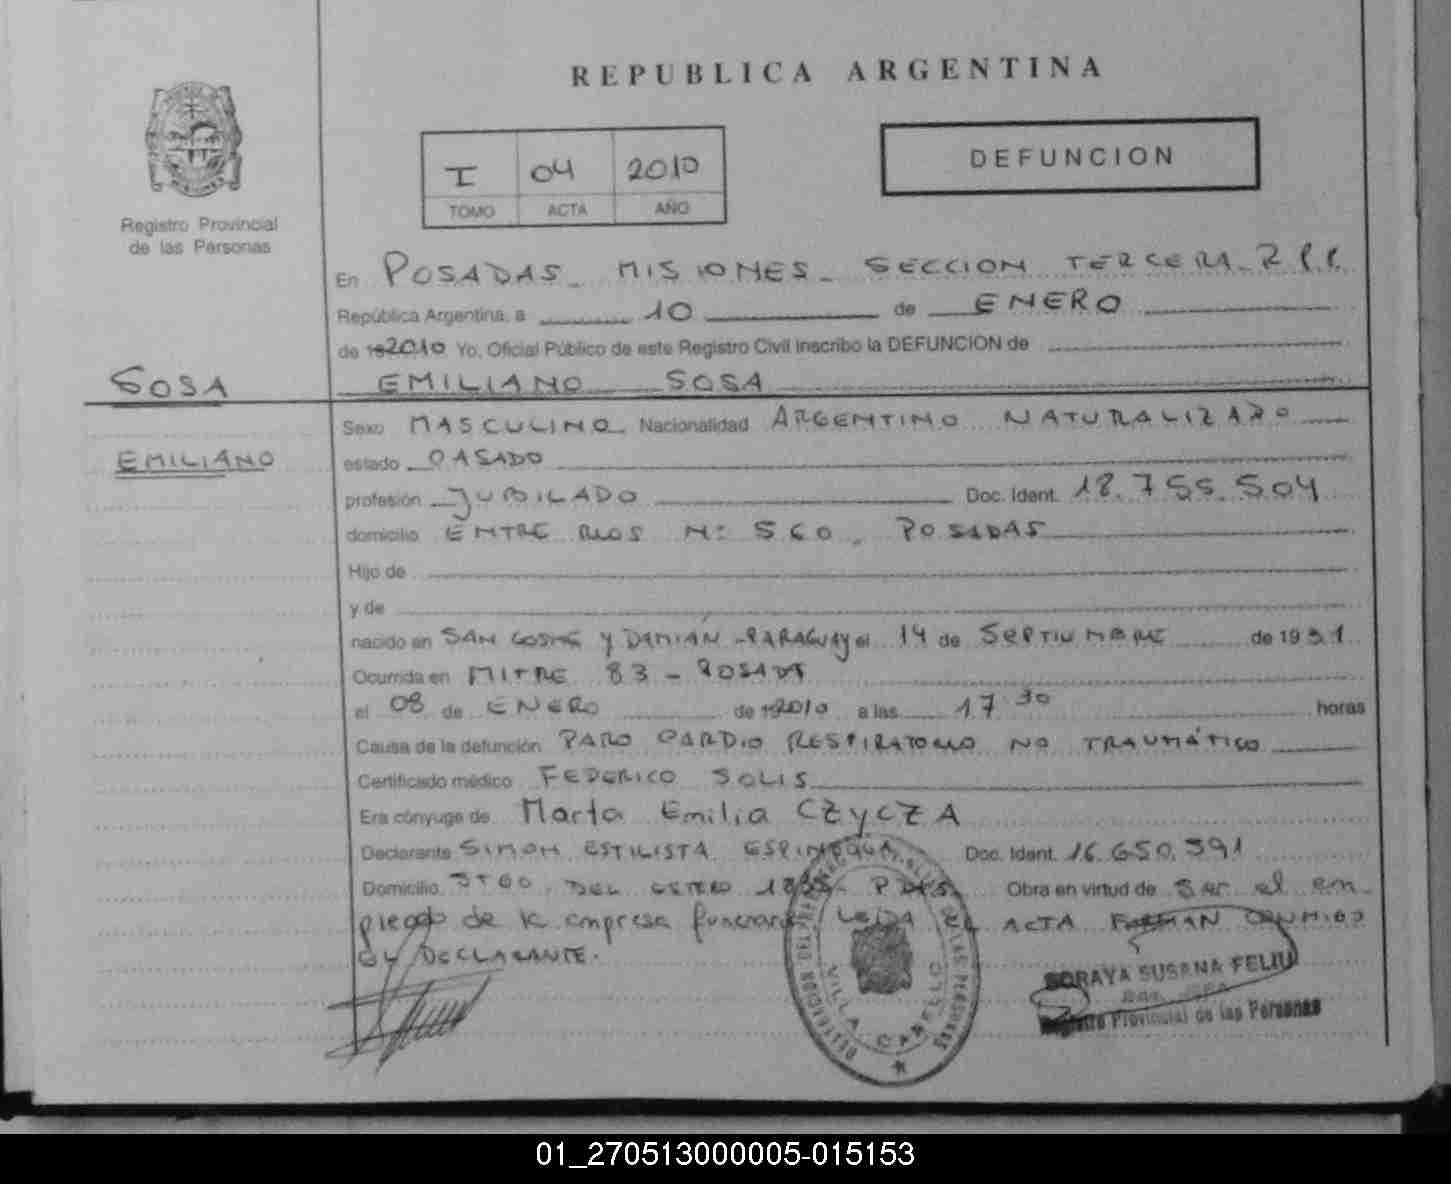 REPUBLICA ARGENTINA
I 04 2010
TOMO ACTA AÑO
DEFUNCION
Registro Provincial
de las Personas
En POSADAS - MISIONES - SECCION TERCERA R.P.P.
República Argentina, a 10 de ENERO
de 192010 Yo, Oficial Público de este Registro Civil inscribo la DEFUNCION de
SOSA
EMILIANO SOSA
EMILIANO
Sexo MASCULINO Nacionalidad ARGENTINO NATURALIZADO
estado CASADO
profesión JUBILADO Doc. Ident. 18.755.504
domicilio ENTRE RIOS Nº 560. POSADAS
Hijo de
y de
nacido en SAN COSME Y DAMIÁN - PARAGUAY el 14 de SEPTIEMBRE de 1931
Ocurrida en MITRE 83 - POSADAS
el 08 de ENERO de 192010 a las 17 30 horas
Causa de la defunción PARO CARDIO RESPIRATORIO NO TRAUMÁTICO
Certificado médico FEDERICO SOLIS
Era cónyuge de Marta Emilia CZYCZA
Declarante SIMON ESTILISTA Doc. Ident. 16.650.391
Domicilio STGO. DEL ESTERO Obra en virtud de Ser el em-
pleado de la empresa funeraria LEIDA EL ACTA FIRMAN CONMIGO
EL DECLARANTE.
DELEGACION DEL REGISTRO PROVINCIAL DE LAS PERSONAS
VILLA CABELLO
SORAYA SUSANA FELIU
Registro Provincial de las Personas
01_270513000005-015153